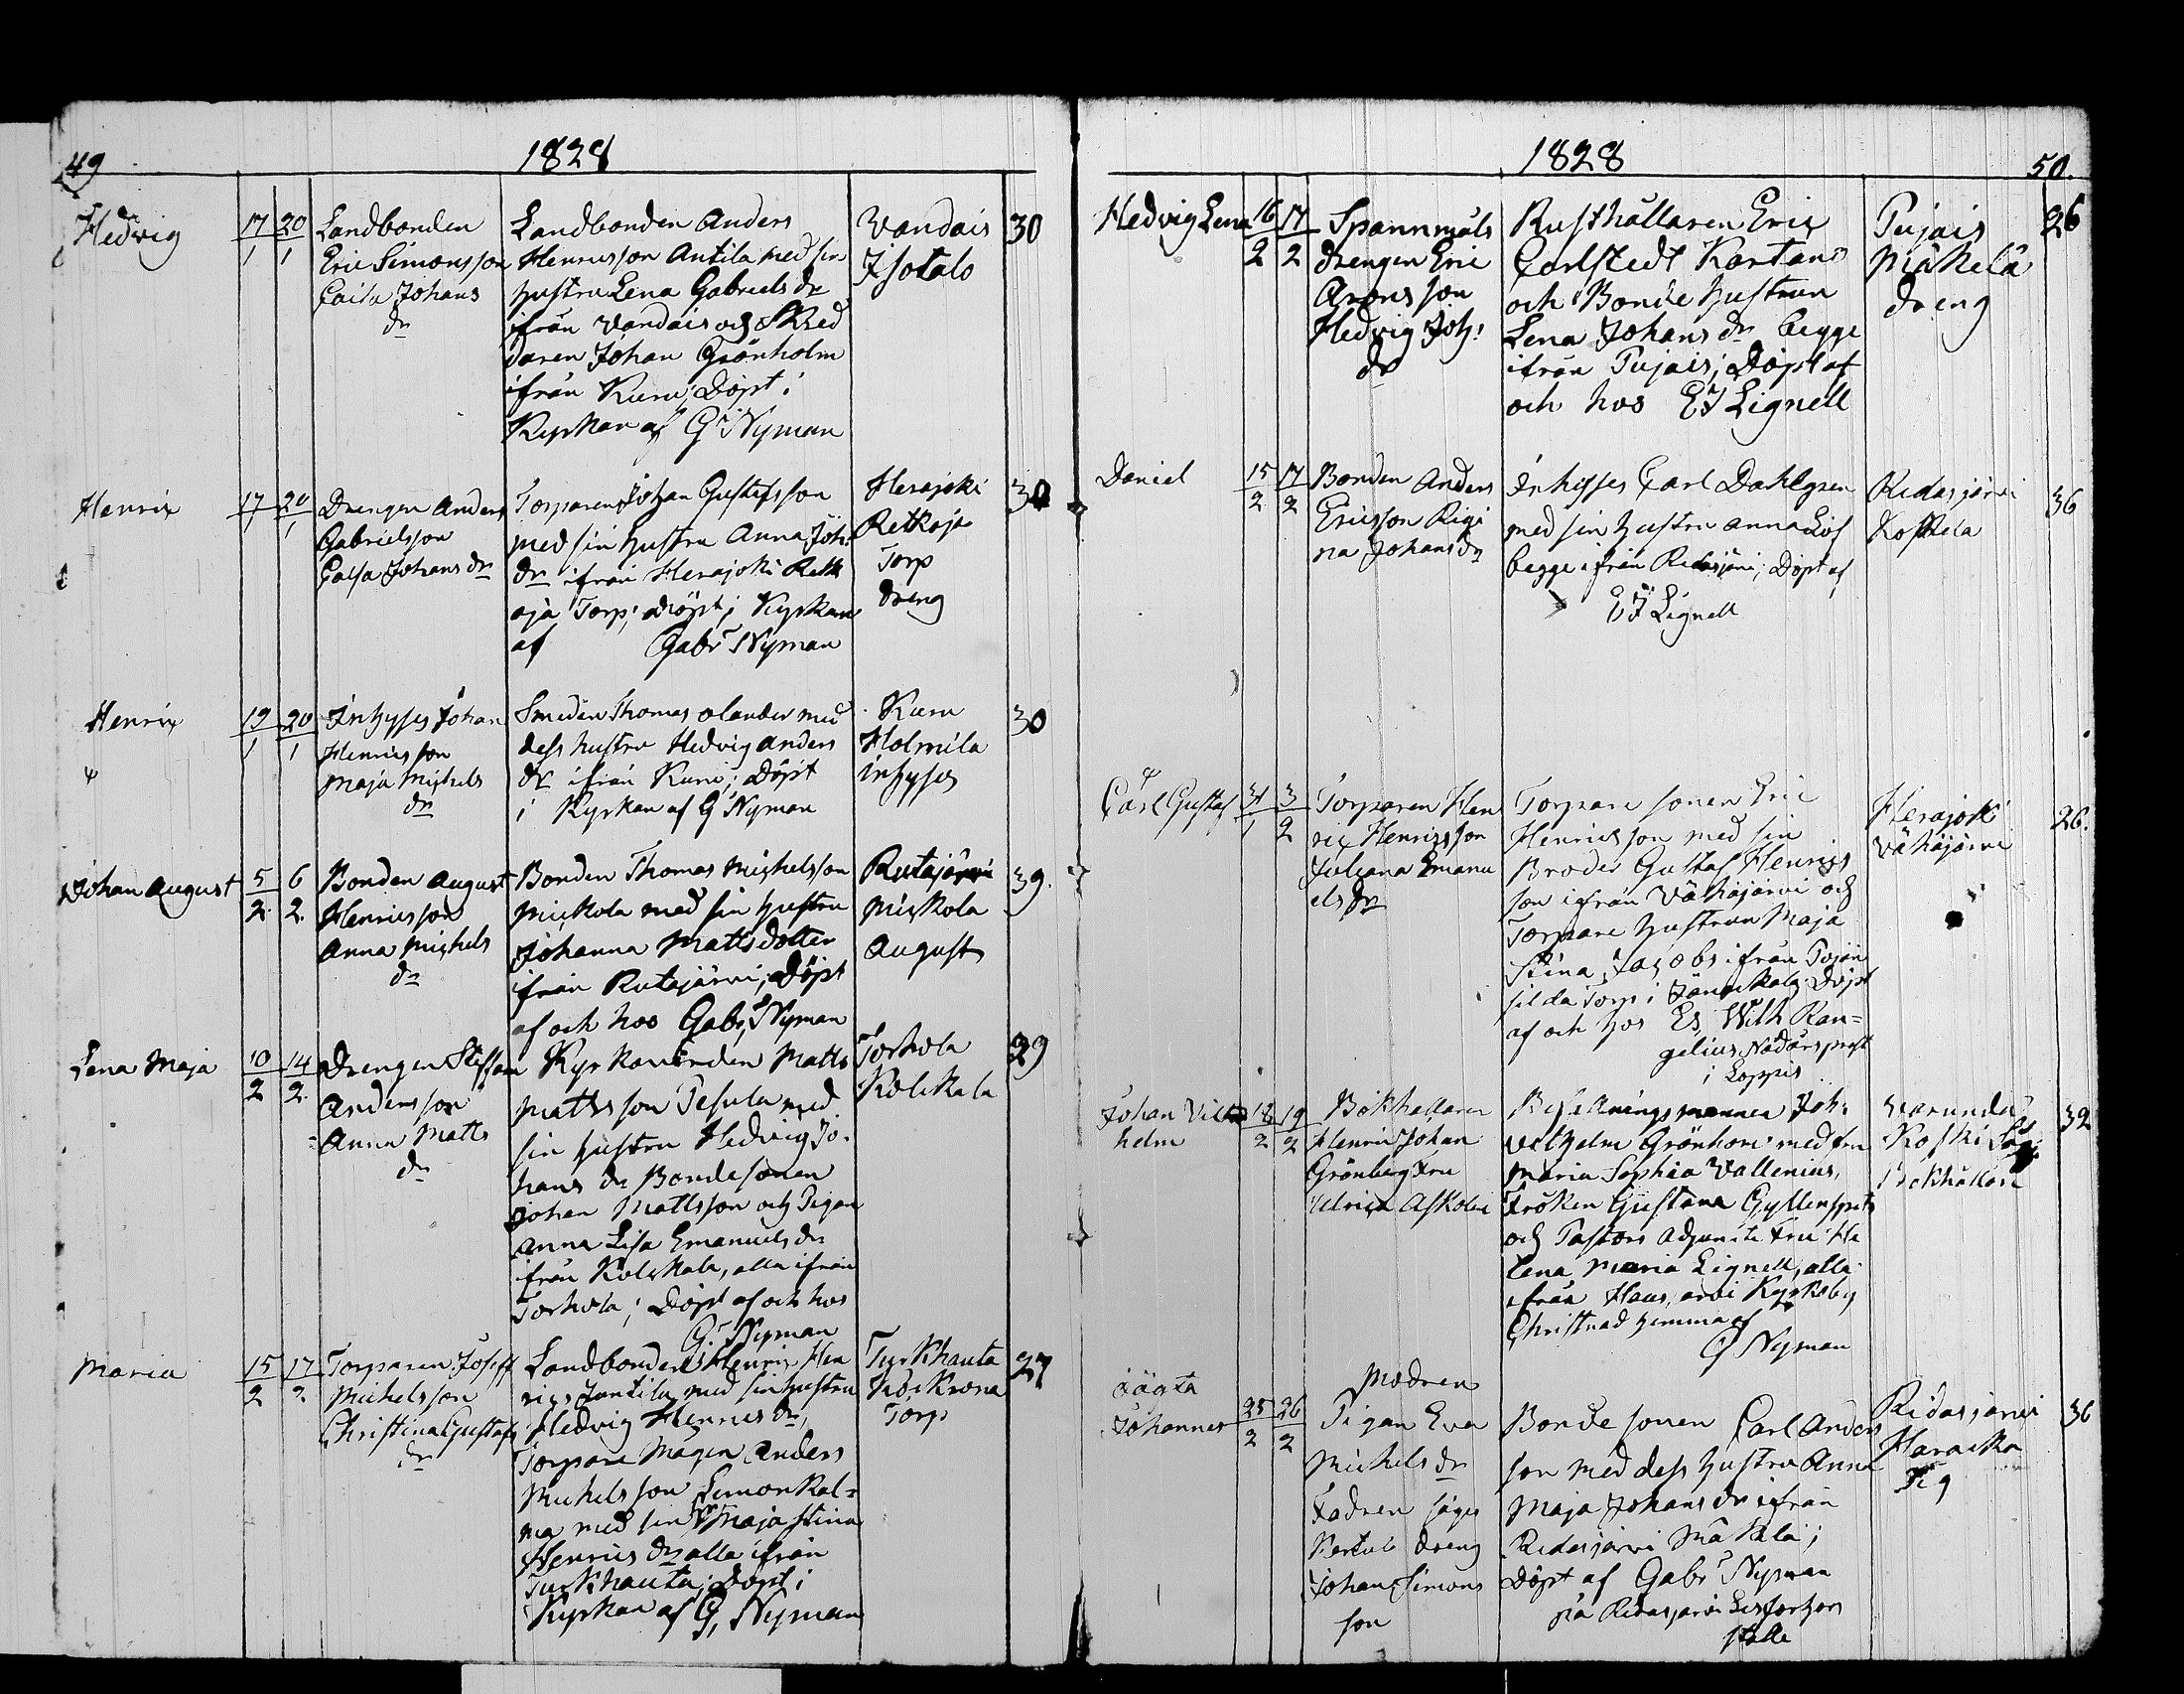 49
1828
Hedvig
17/1 20/1
Landbonden
Eric Simonsson
Caisa Johans
dr
Landbonden Anders
Henricsson Antila med sin
hustru Lena Gabriels dr
ifrån Vandais och Skred
daren Johan Grönholm
ifrån Kuru; Döpt i
Kyrkan af G Nyman
Vandais
Isotalo
30
Henric
17/1 20/1
Drengen Anders
Gabrielsson
Caisa Johans dr
Torparen Johan Gustafsson
med sin hustru Anna Joh:
dr ifrån Herajoki Retk
oja Torp; döpt i Kyrkan
af Gabr Nyman
Herajoki
Retkoja
Torp
dreng
30
Henric
19/1 20/1
Inhyses Johan
Henricsson
Maja Michels
dr
Smeden Thomas Olander med
dess hustru Hedvig Anders
dr ifrån Kuru; Döpt
i Kyrkan af G Nyman
Kuru
Holmila
inhyses
30
Johan August
5/2 6/2
Bonden August
Henricsson
Anna Michels
dr
Bonden Thomas Michelsson
Mickola med sin hustru
Johanna Matts dotter
ifrån Rutajärvi; Döpt
af och hos Gabr Nyman
Rutajärvi
Mickola
August
39.
Lena Maja
10/2 14/2
Drengen Steffan
Andersson
Anna Matts
dr
Kyrkovärden Matts
Mattsson Pesula med
sin hustru Hedvig Jo:
hans dr Bondesonen
Johan Mattsson och Pigan
Anna Lisa Emanuels dr
ifrån Kolckala, alla ifrån
Torhola; Döpt af och hos
G: Nyman
Torhola
Kolckala
29
Maria
15/2 17/2
Torparen Joseff
Michelsson
Christina Gustafs
dr
Landbonden Henric Hen
rics Juntila med sin hustru
Hedvig Henrics dr,
Torpare Mågen Anders
Michelsson Simon Kal=
ma med sin Maja Stina
Henrics dr alla ifrån
Turkhauta; Döpt i
Kyrkan af G, Nyman
Turkhauta
Torp
27
1828
50.
Hedvig Lena
16/2 17/2
Spannmåls
drengen Eric
Aronsson
Hedvig Joh:
dr
Rusthållaren Eric
Carlstedt Kartano
och Bonde hustrun
Lena Johans dr begge
ifrån Pujais; Döpt af
och hos E J Lignell
Pujais
Mäkelä
dreng
26
Daniel
15/2 17/2
Bonden Anders
Ericsson Rigi
na Johans dr
Inhyses Carl Dahlgren
med sin hustru Anna Löf
begge ifrån Ridasjärvi; Döpt af
E J Lignell
Ridasjärvi
Koskela
36
Carl Gustaf
31/1 3/2
Torparen Hen
ric Henricsson
Juliana Emanu
els dr
Torpare sonen Eric
Henricsson med sin
Broder Gustaf Henrics
son ifrån Vähäjärvi och
Torpare hustrun Maja
Stina Jacobs ifrån
silda Torp i Janackala; Döpt
af och hos Es, Wilh Ran=
gelius Nådårs prest
i Loppis
Herajoki
Vähäjärvi
26.
Johan Vil
helm
18/2 19/2
Bokhållaren
Henric Johan
Grönberg Fru
Ulrica Askolin
Befallningsmannen Joh:
Vilhelm Grönhom med fru
Maria Sophia Vallenius,
Fröken Gustava Gyllenspets
och Pastors Adjuncts Fru He
lena Maria Lignell, alla
ifrån Hausjärvi Kyrkoby
Christnad hemma af
G Nyman
Koski Såg
Bokhållare
32
oägta
Johannes
25/2 26/2
Modren
Pigan Eva
Michels dr
Fadren säges
dreng
Johan Simons
son
Bonde sonen Carl Anders
son med dess hustru Anna
Maja Johans dr ifrån
Ridasjärvi Mäkelä;
Döpt af Gabr Nyman
på Ridasjärvi Läsförhörs
ställe
Ridasjärvi
Haracka
Pig
36